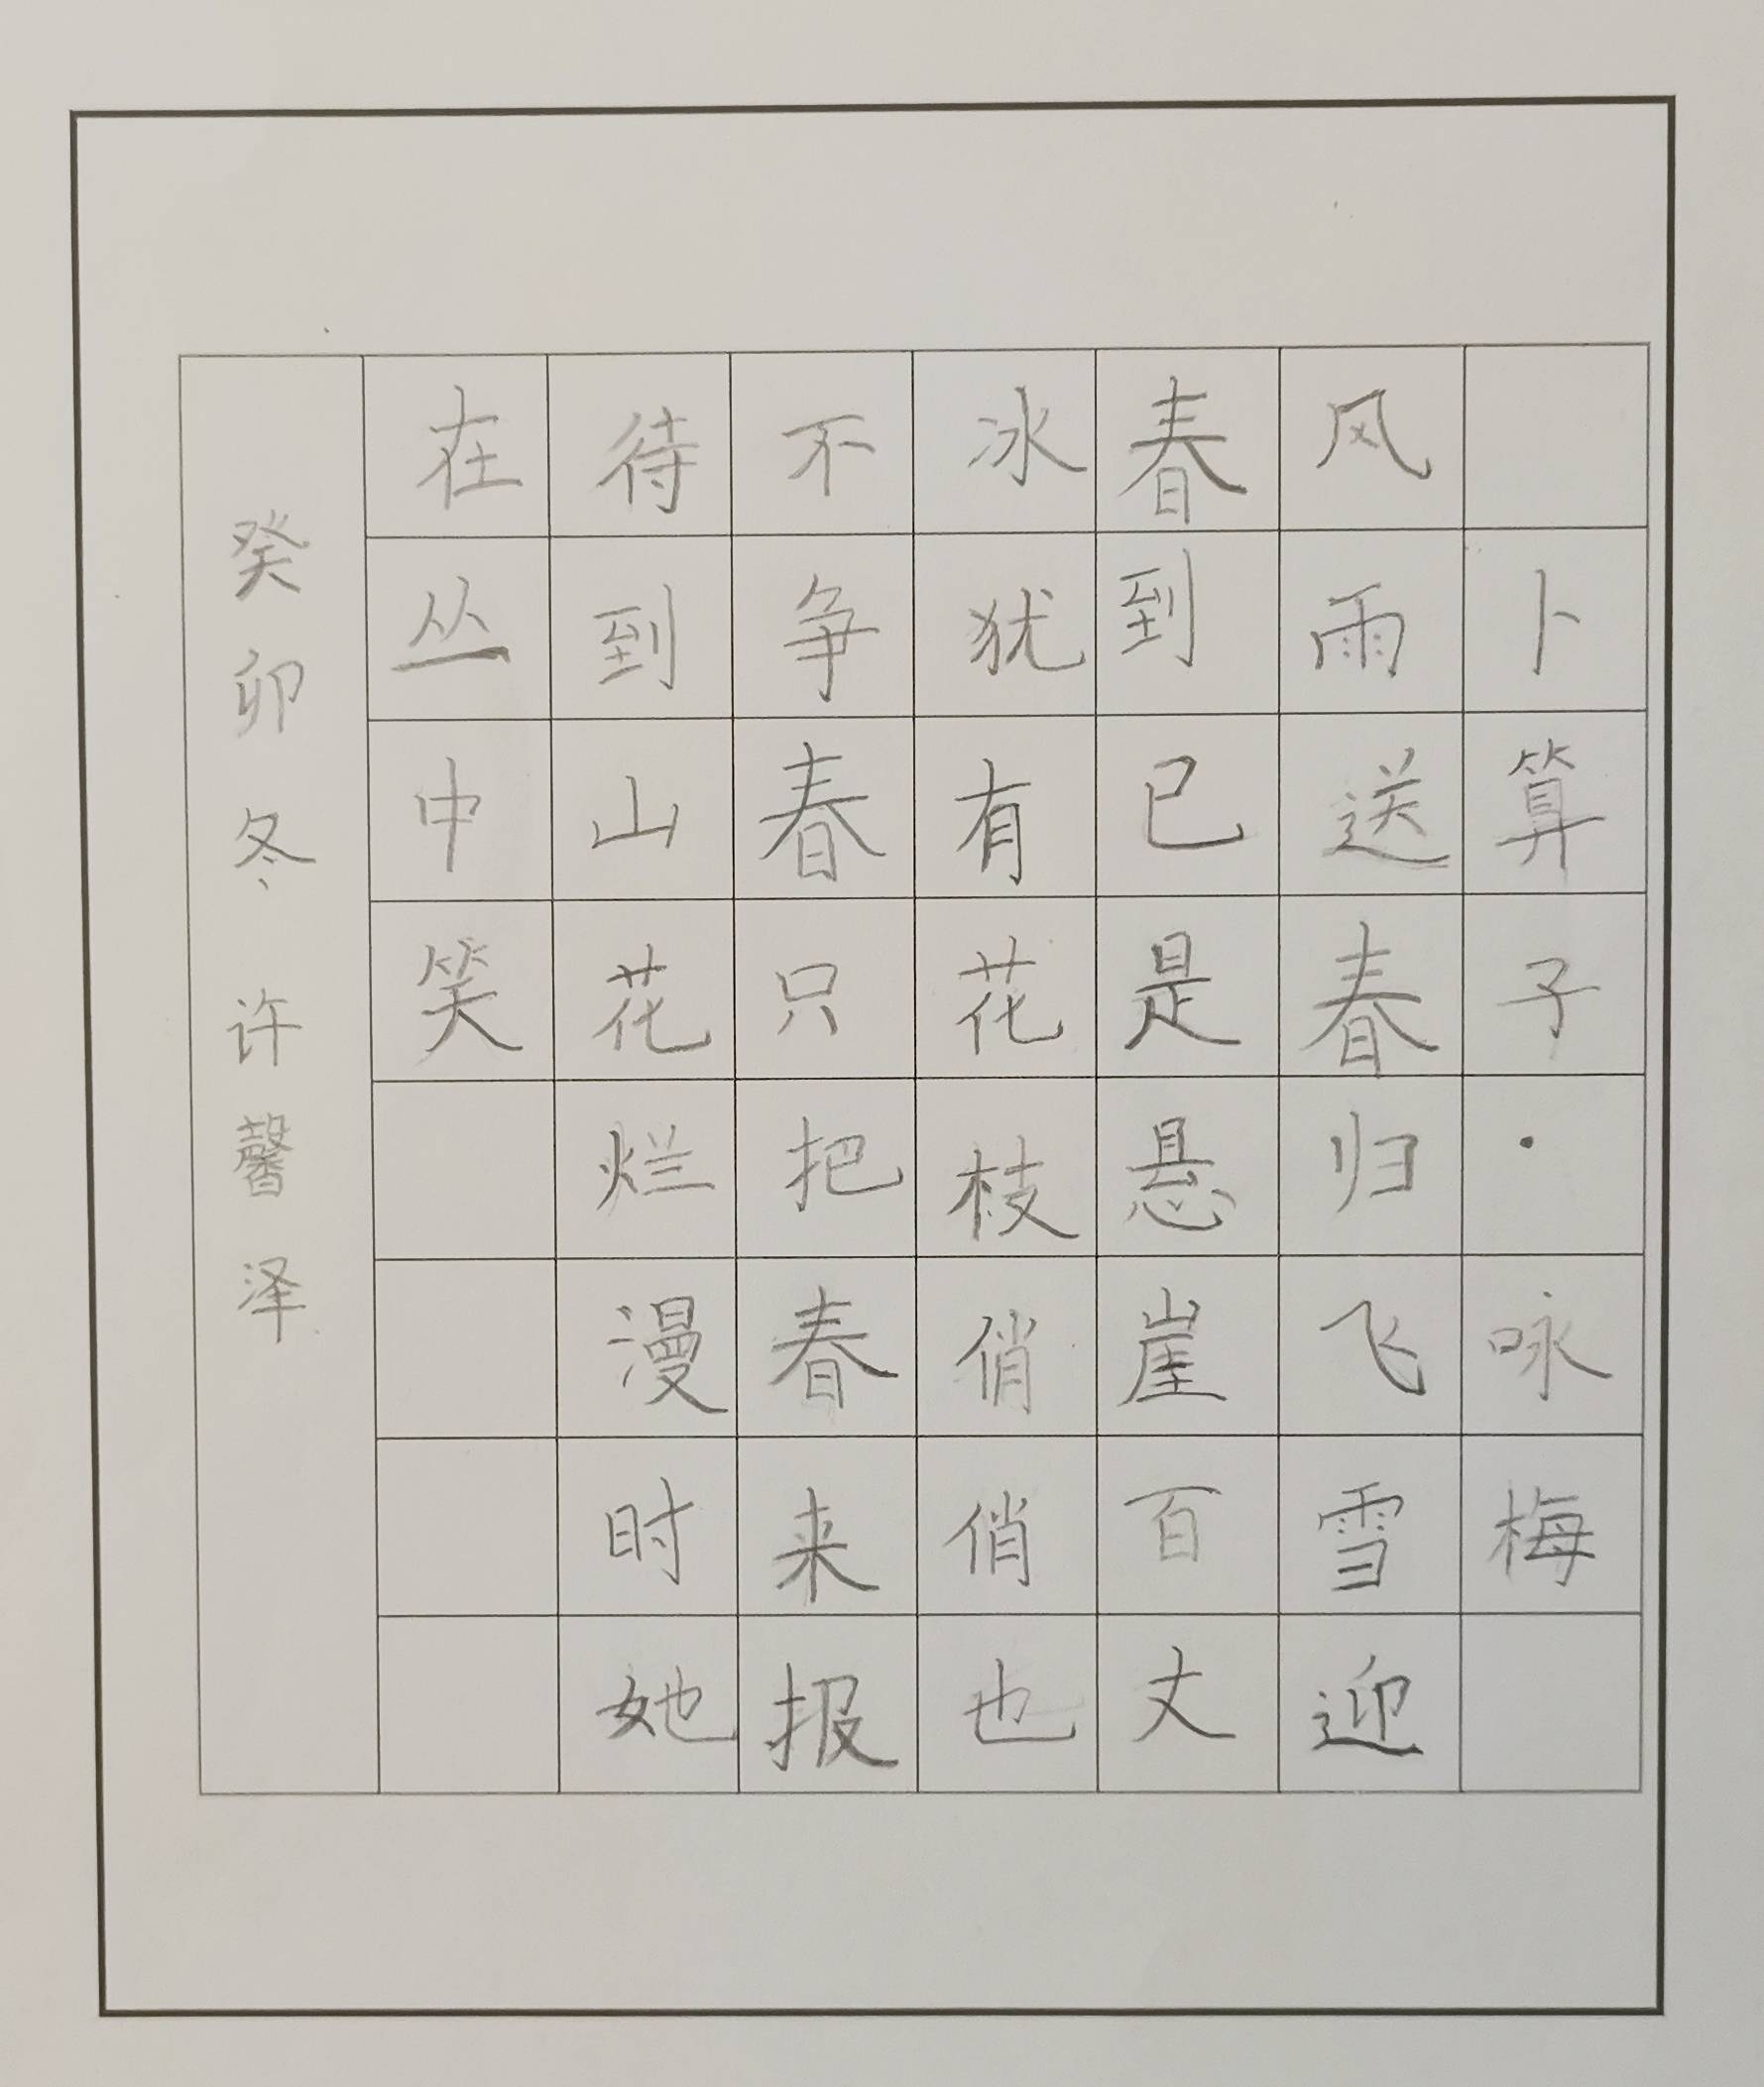 卜算子·咏梅
风雨送春归飞雪迎
春到已是悬崖百丈
冰犹有花枝俏俏也
不争春只把春来报
待到山花烂漫时她
在丛中笑
癸卯冬 许馨泽